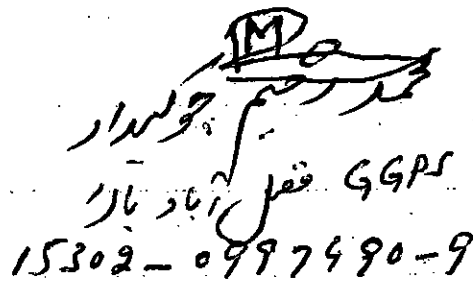 M
محمد رحیم چوکیدار
GGPS فضل آباد
15302-0997490-9